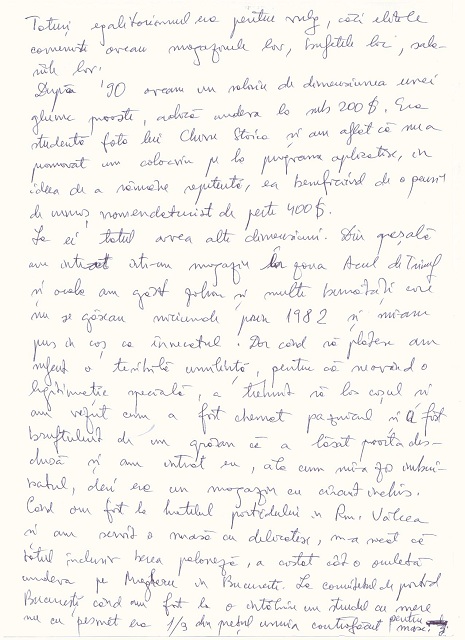 Totuși egalitarismul era pentru vulg, căci elitele
comuniste aveau magazinele lor, bufetele lor, salo-
nele lor.
După '90 aveam un salariu de dimensiunea unei
glume proaste, adică undeva la sub 200$. Era
studentă fata lui Chivu Stoica și am aflat că nu a
promovat un colocviu pe la programe aplicative, în
ideea de a rămâne repetentă, ea beneficiind de o pensie
de urmaș nomenclaturist de peste 400$.
La ei totul avea alte dimensiuni. Din greșală
am intrat într-un magazin în zona Arcul de Triumf
și acolo am găsit și multe bunătăți care
nu se găseau niciunde prin 1982 și mi-am
pus în coș ca înnecatul. Dar când să plătesc am
suferit o teribilă umilință, pentru că neavând o
legitimație specială, a trebuit să las coșul și
am văzut cum a fost chemat paznicul și a fost
bruftuluit de un că a lăsat poarta des-
chisă și am intrat eu, ăla cum mi-a zis
deci era un magazin cu circuit închis.
Când am fost la hotelul partidului în Rm. Vâlcea
și am servit o masă cu delicatese, m-a șocat că
totul inclusiv berea poloneză, a costat cât o omletă
undeva pe Magheru în București. La comitetul de partid
București când am fost la o întâlnire un ștrudel cu mere
nu cu pesmet era 1/3 din prețul unuia contrafăcut pentru mase